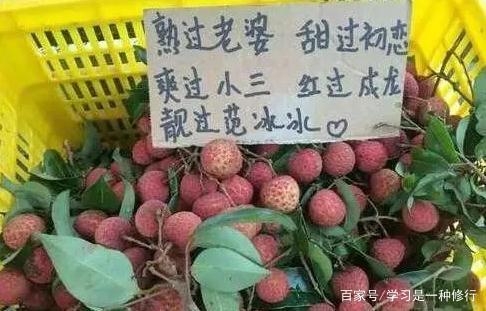 熟过老婆 甜过初恋
爽过小三 红过成龙
靓过范冰冰♡
百家号/学习是一种修行